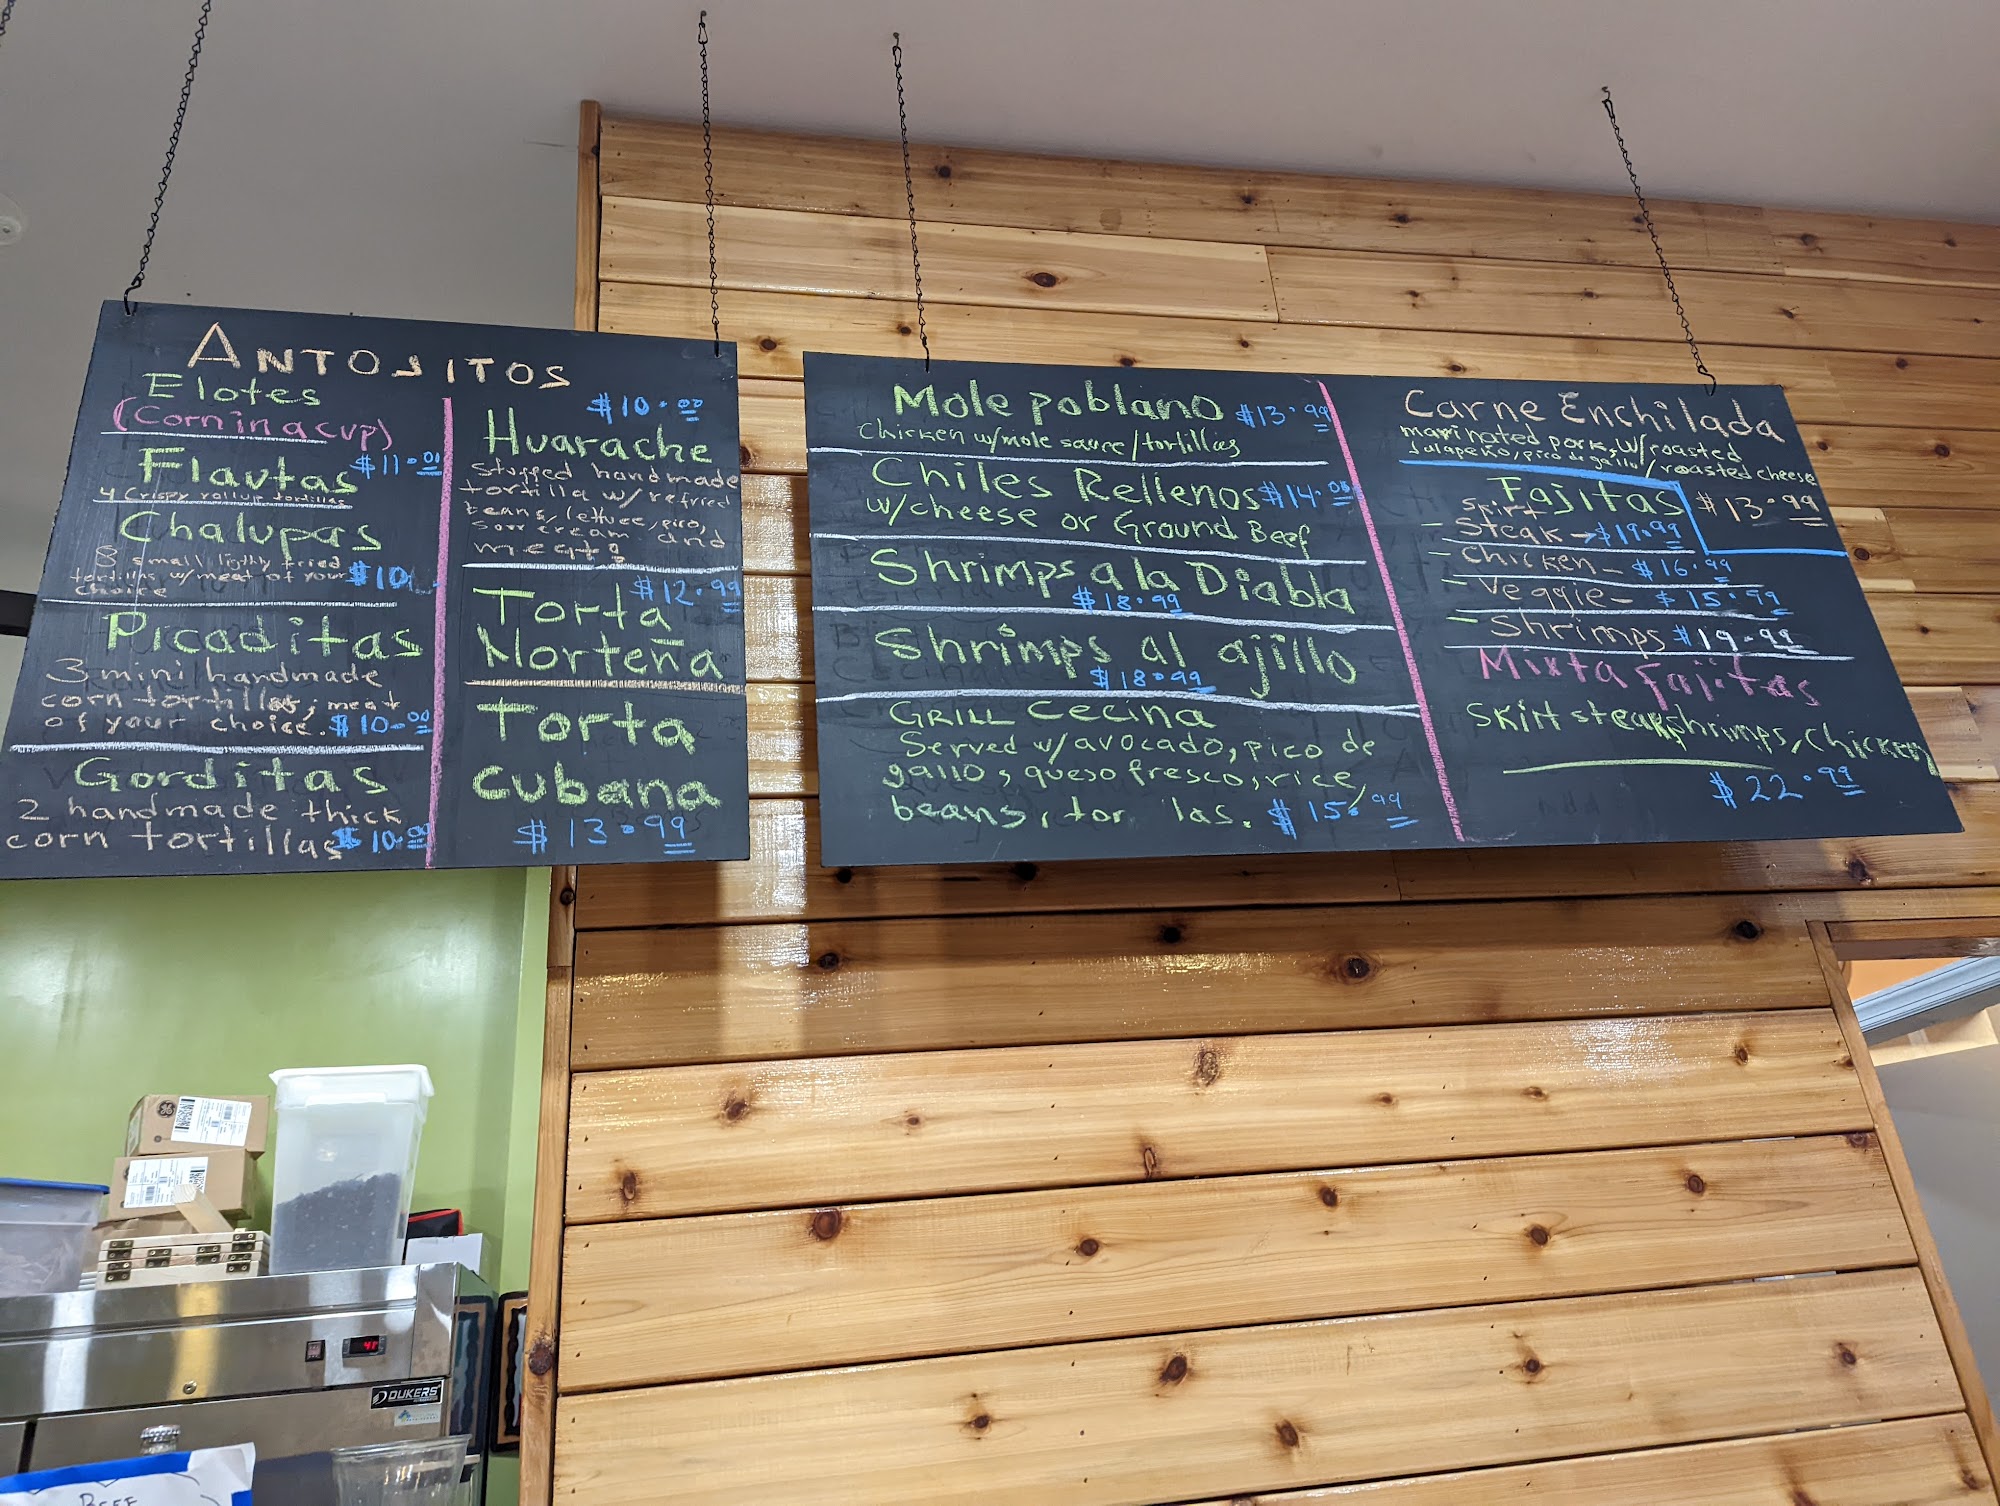 ANTOJITOS
Elotes
(Corn in a cup)
Flautas $11.00
4 Crispy rollup tortillas
Chalupas
3 small ligthly fried
tortillas w/meat of your
choice $10
Picaditas
3 mini handmade
corn tortillas, meat
of your choice. $10.00
Gorditas
2 handmade thick
corn tortillas $10.99
$10.00
Huarache
Stuffed handmade
tortilla w/refried
beans, lettuce, pico,
sour cream and
meat
$12.99
Torta
Norteña
Torta
cubana
$13.99
Mole poblano $13.99
Chicken w/mole sauce/tortillias
Chiles Rellenos $14.00
w/cheese or Ground Beef
Shrimps a la Diabla
$18.99
Shrimps al ajillo
$18.99
GRILL Cecina
Served w/avocado, pico de
gallo, queso fresco, rice,
beans, tor las. $15.99
Carne Enchilada
marinated pork, w/roasted
Jalapeño, pico de gallo/roasted cheese
$13.99
Fajitas
- Steak → $19.99
- Chicken - $16.99
- Veggie - $15.99
- Shrimps $19.99
Mixta Fajitas
Skirt steak, shrimps, chicken
$22.99
41
DUKERS
BEEF